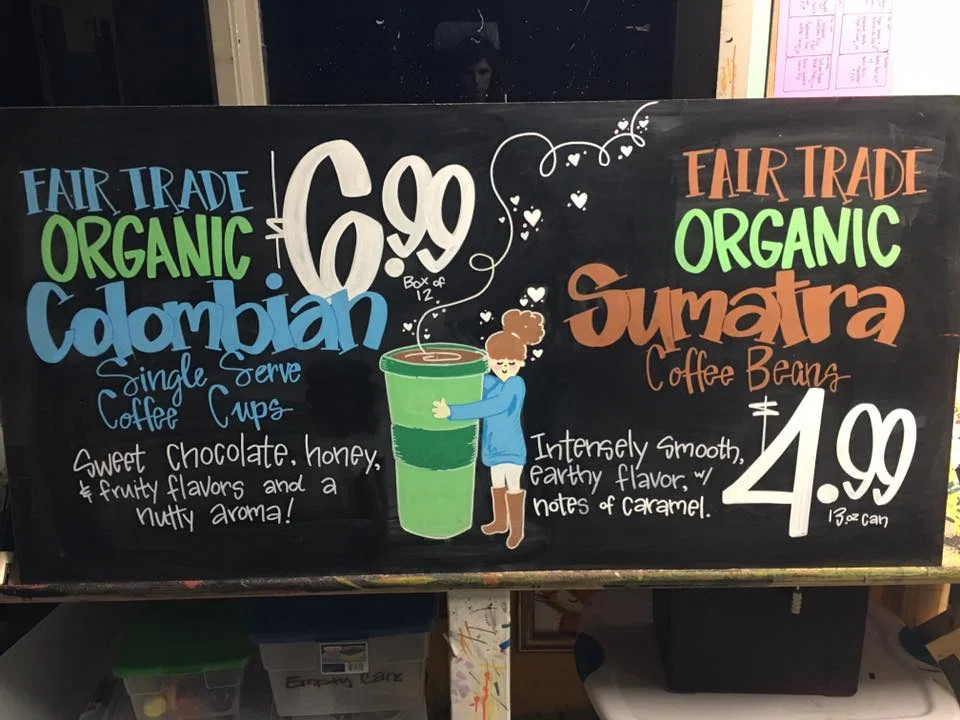 FAIR TRADE
ORGANIC
$6.99
Box of
12
Colombian
Single Serve
Coffee Cups
Sweet chocolate, honey,
& fruity flavors and a
nutty aroma!
FAIR TRADE
ORGANIC
Sumatra
Coffee Beans
$4.99
13.oz can
Intensely smooth,
earthy flavor, w/
notes of caramel.
Empty Cans